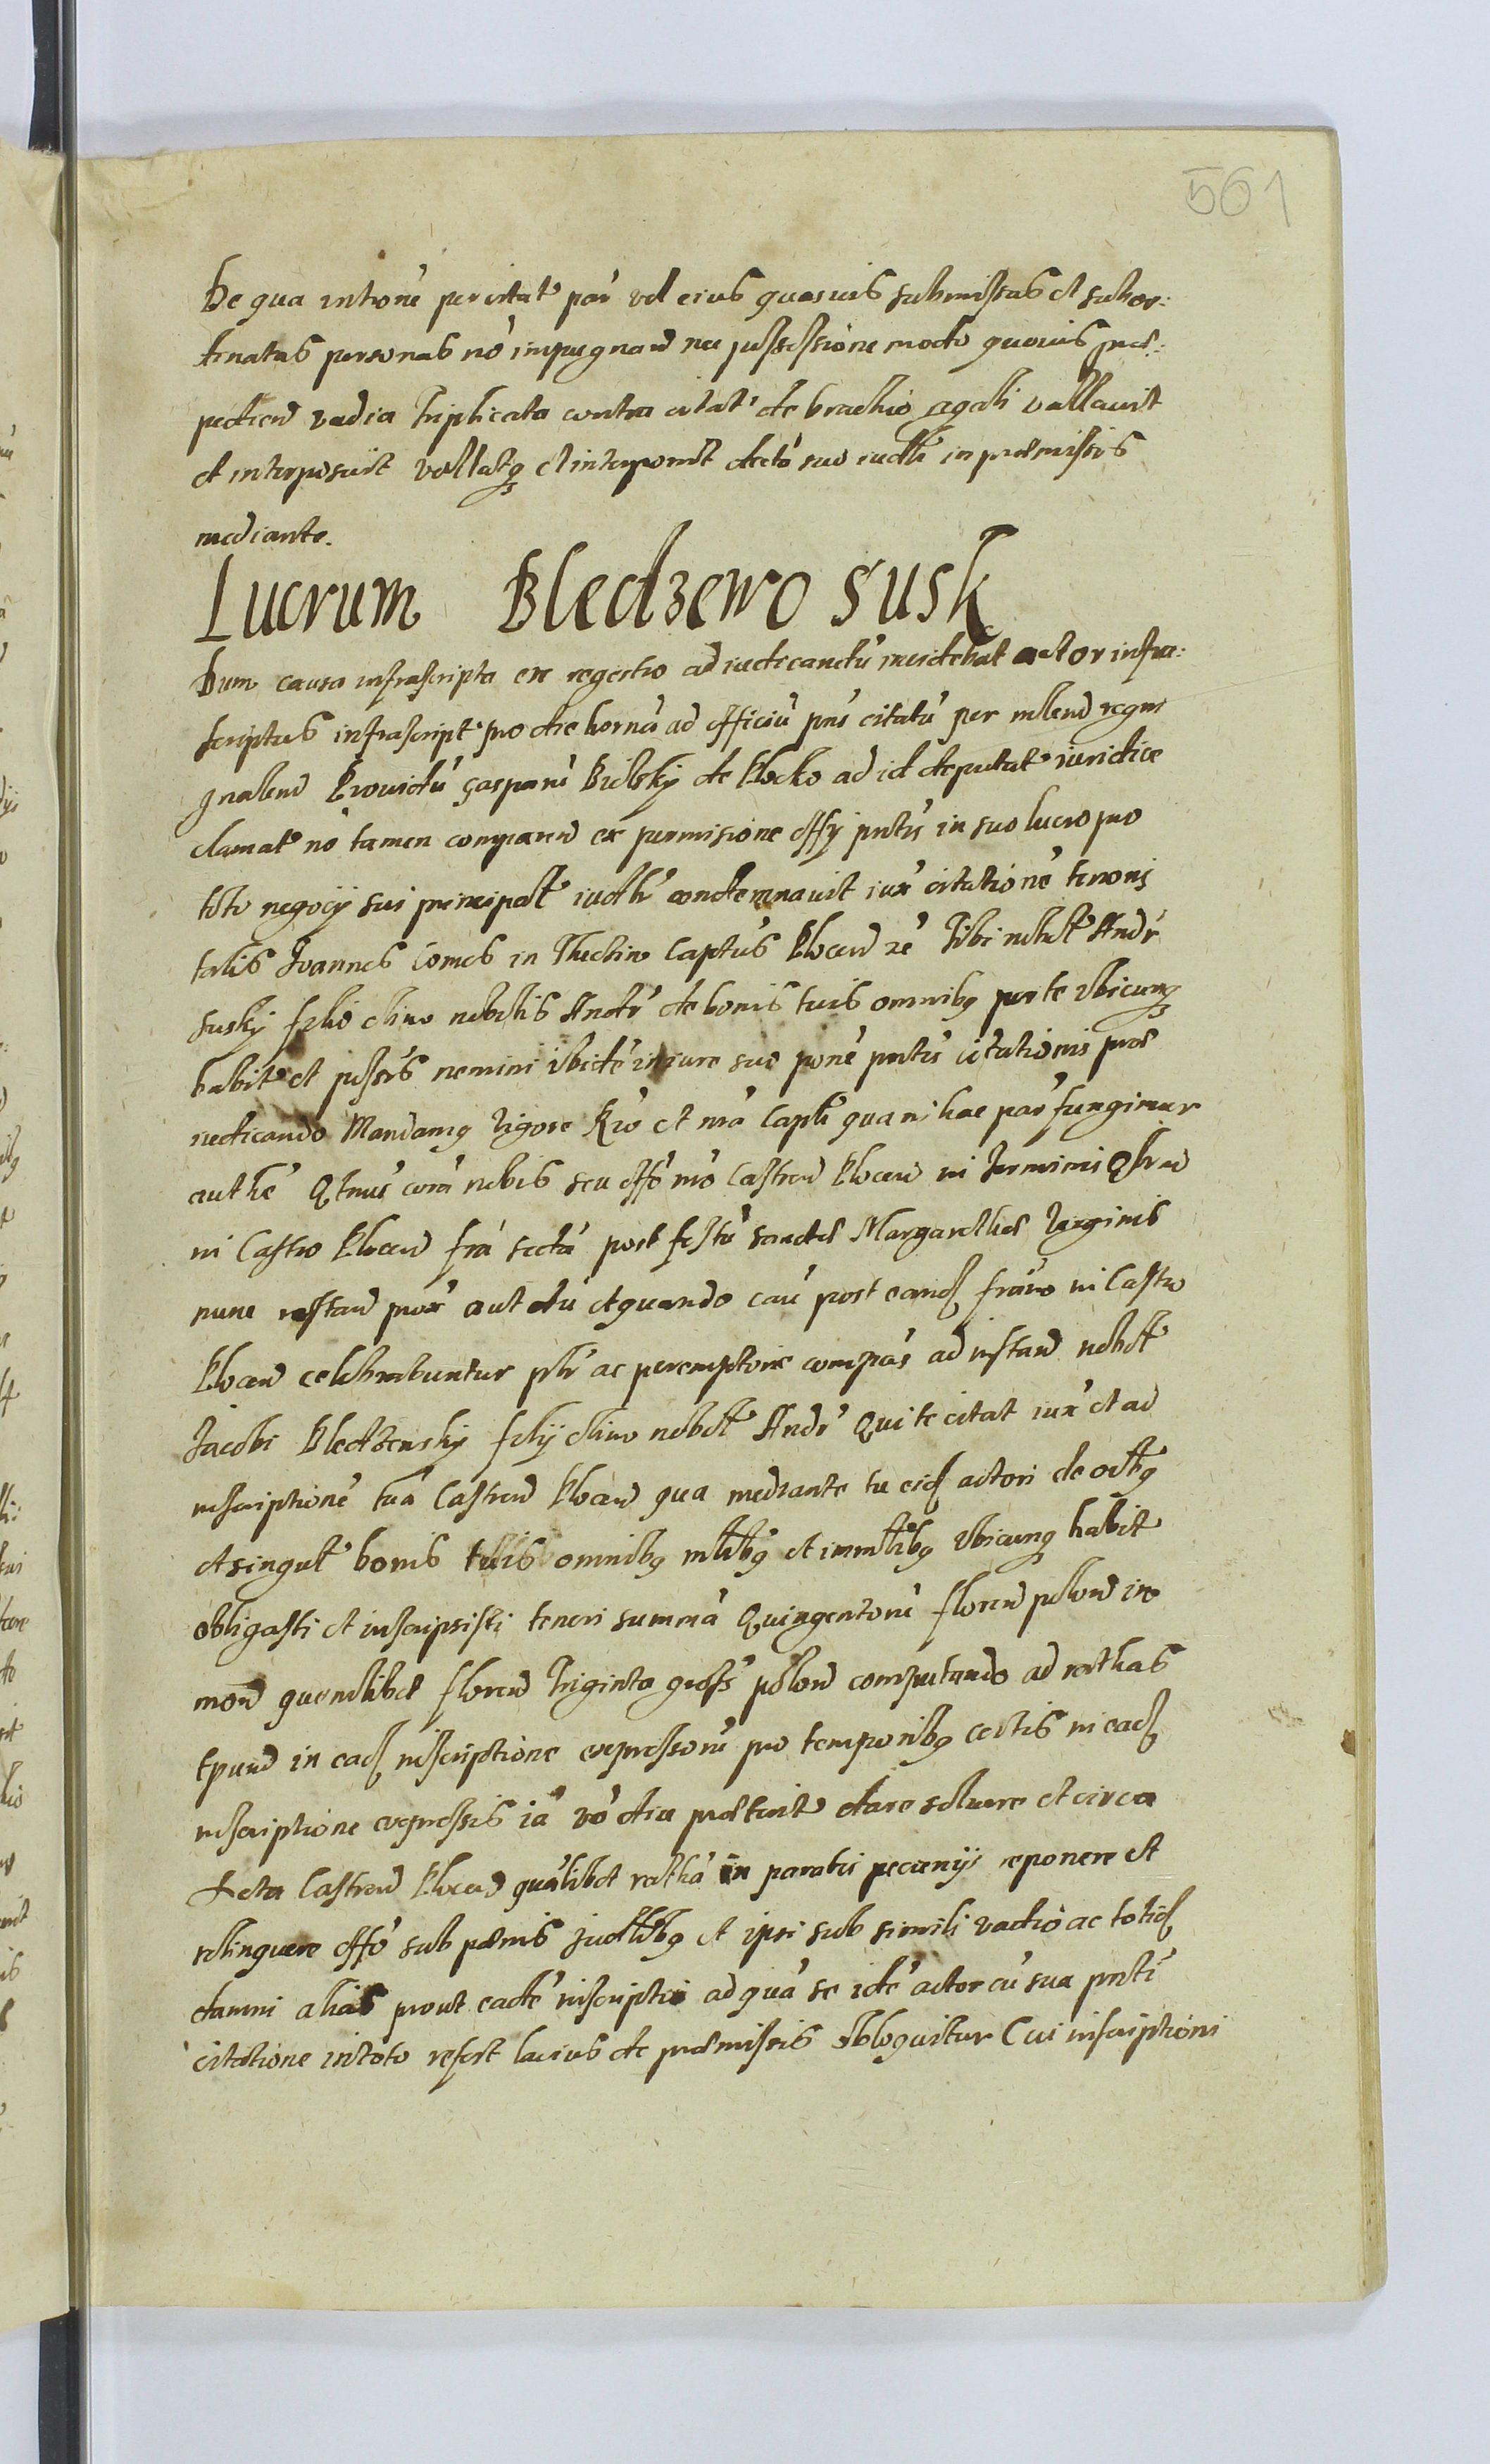 561
De qua introń per citat par vel eius quasuis submissas et subor:
dinatas personas nó impugnand nec possessione modo quouis prae:
pediend vadia triplicata contra citat de brachio regali vallauit
et interposuit vallatq et interponit decto suo iudli in praemissis
mediante.
Lucrum Bledzewo Susk
Dum causa infrascripta ex regestro ad iudicandú incidebat actor infra:
scriptus infrascript pro die herná ad officiú pńs citatú per mlend regni
gnalem Prouidú Gasparú Bielsky de Plocko ad id deputat iuridice
clamat nó tamen comparen ex permisione offy pntis in suo lucro pro
toto negocy sui principalt iudlr condemnauit iux citationé tenoris
talis Joannes Comes in Theclin Captús Plocen zé Tibi nobilt Andr
Susky filio olim nobilis Andr de bonis tuis omnibq per te vbicunq
habit et possis nemini ibidé in iure suo poné pntis citationis prae
iudicando Mandamq vigore Rio et nrá Capli qua in hac par fungimur
authé Qtnus corá nobis seu offo nró Castren Plocen in terminis Qbrum
in Castro Plocen friá sectá post festú sanctae Margarethae virginis
nunc instan prox aut dú et quando caú post eand friáro in Castro
Plocen celebrabuntur plr ac peremptorie compás ad instan nobilt
Jacobi Bledzensky fily olim nobilt Andr Qui te citat iux et ad
inscriptioné tuá Castren Plocen qua mediante tu eid actori de oibq
et singult bonis tuis omnibq mlibq et immlibq vbicunq habit
obligasti et inscripsisti teneri summá Quingentorú floren polon in
mon quemlibet floren Triginta gross polon computando ad rathas
tpum in ead inscriptione expressorú pro temporibq certis in ead
inscriptione expressis iá vó diu praeterit dare soluere et circa
Acta Castren Plocen quálibet rathá in paratis pecunijs reponere et
relinquere offo sub poenis iudlibq et ipsi sub simili vadio ac totid
damni alias prout eadé inscriptio ad quá se idé actor cú sua pnti
citatione intoto refert lacius de praemissis obloquitur Cui inscriptioni